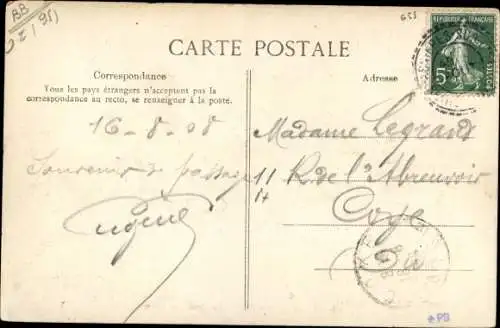 BB
G55
RÉPUBLIQUE FRANÇAISE
5c
CARTE POSTALE
Correspondance
Tous les pays étrangers n'acceptent pas la
correspondance au recto, se renseigner à la poste.
Adresse
16-8-08
Souvenir de passage
Eugène
Madame Legrand
11 R. de l'Abreuvoir
H
Coye
*PB